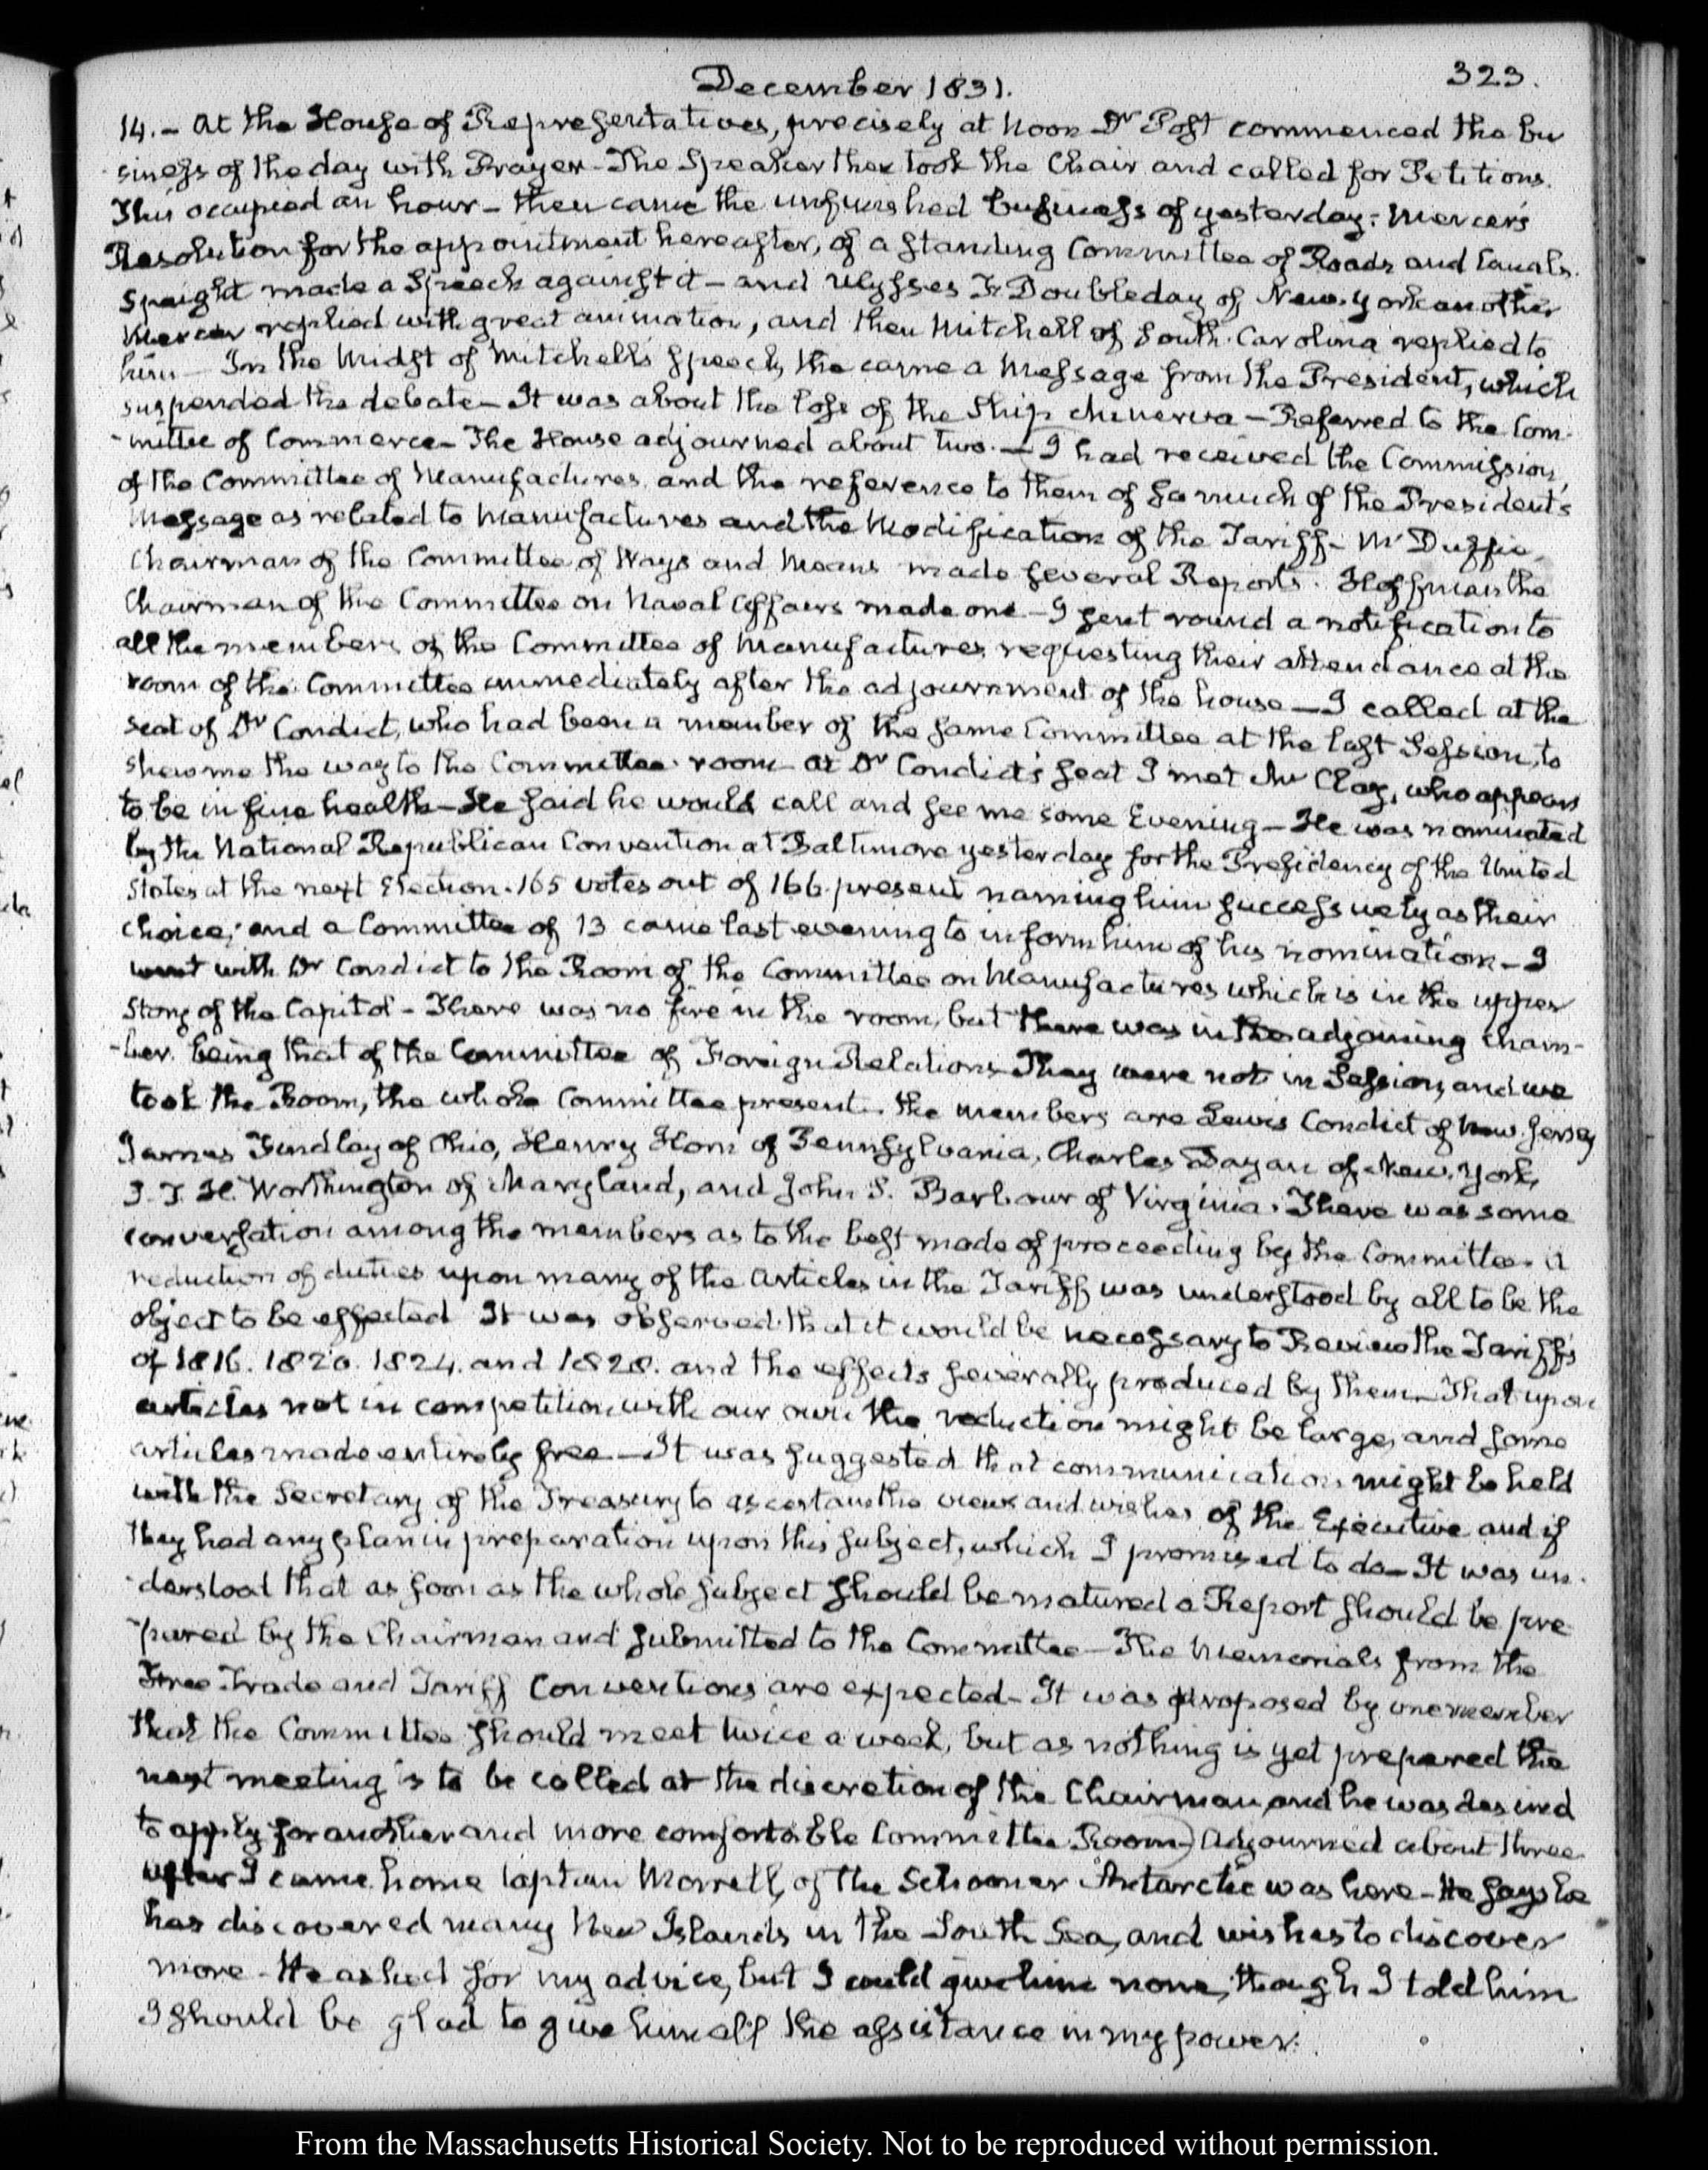 323.
December 1831.
14.- At the House of Representatives, precisely at Noon Dr Post commenced the bu
siness of the day with Prayer- The Speaker then took the Chair and called for Petitions.
This occupied an hour- then came the unfinished business of yesterday: Mercer's
Resolution for the appointment hereafter, of a standing Committee of Roads and Canals.
Speight made a Speech against it- and Ulysses F. Doubleday of New-York another
Mercer replied with great animation, and then Mitchell of South-Carolina replied to
him- In the Midst of Mitchell's speech, the came a Message from the President, which
suspended the debate- It was about the loss of the Ship Minerva- Referred to the Com-
-mittee of Commerce- The House adjourned about two.- I had received the Commission,
of the Committee of Manufactures, and the reference to them of so much of the President's
Message as related to Manufactures and the Modification of the Tariff- Mc Duffie,
Chairman of the Committee of Ways and Means made several Reports. Hoffman the
Chairman of the Committee on Naval Affairs made one- I sent round a notification to
all the members of the Committee of Manufactures, requesting their attendance at the
room of the Committee immediately after the adjournment of the house- I called at the
seat of Dr Condict, who had been a member of the same Committee at the last Session, to
shew me the way to the Committee room- At Dr Condict's seat I met Mr Clay, who appears
to be in fine health- He said he would call and see me some Evening- He was nominated
by the National Republican Convention at Baltimore yesterday for the Presidency of the United
States at the next Election. 165 votes out of 166 present naming him successively as their
choice; and a Committee of 13 came last evening to inform him of his nomination- I
went with Dr Condict to the Room of the Committee on Manufactures which is in the upper
Story of the Capitol- There was no fire in the room, but there was in the adjoining cham-
-ber being that of the Committee of Foreign Relations- They were not in Session, and we
took the Room, the whole Committee present. the members are Lewis Condict of New-Jersey
James Findlay of Ohio, Henry Horn of Pennsylvania, Charles Dayan of New-York,
J. T. H. Worthington of Maryland, and John S. Barbour of Virginia. There was some
conversation among the members as to the best mode of proceeding by the Committee. A
reduction of duties upon many of the Articles in the Tariff was understood by all to be the
object to be effected It was observed that it would be necessary to Review the Tariffs
of 1816. 1820. 1824. and 1828. and the effects severally produced by them- That upon
articles not in competition with our own the reduction might be large, and some
articles made entirely free- It was suggested that communication might be held
with the Secretary of the Treasury to ascertain the views and wishes of the Executive and if
they had any plan in preparation upon this subject, which I promised to do- It was un-
-derstood that as soon as the whole subject should be matured a Report should be pre
-pared by the Chairman and submitted to the Committee- The Memorials from the
Free Trade and Tariff Conventions are expected- It was proposed by one member
that the Committee should meet twice a week, but as nothing is yet prepared the
next meeting is to be called at the discretion of the Chairman and he was desired
to apply for another and more comfortable Committee Room) Adjourned about three
after I came home Captain Morrell, of the Schooner Antarctic was here- He says he
has discovered many New Islands in the South Sea, and wishes to discover
more- He asked for my advice, but I could give him none, though I told him
I should be glad to give him all the assistance in my power.
From the Massachusetts Historical Society. Not to be reproduced without permission.